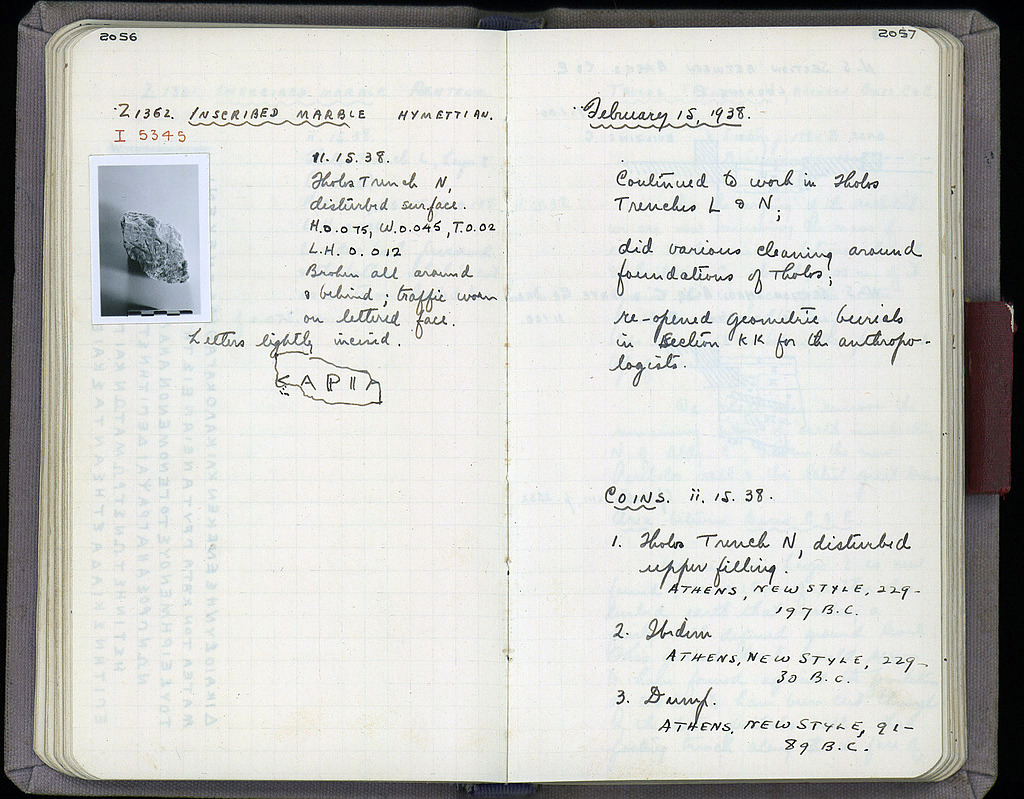 2056
Z 1362. INSCRIBED MARBLE HYMETTIAN.
I 5345
11.15.38.
Tholos Trench N,
disturbed surface.
H.0.075, W.0.045, T.0.02
L.H. 0.012
Broken all around
& behind; traffic worn
on lettered face.
Letters lightly incised.
ΚΑΡΠΑ
2057
February 15, 1938.
Continued to work in Tholos
Trenches L & N;
did various cleaning around
foundations of Tholos;
re-opened geometric burials
in Section KK for the anthropo-
logists.
COINS. ii. 15. 38.
1. Tholos Trench N, disturbed
upper filling.
ATHENS, NEW STYLE, 229-
197 B.C.
2. Ibidem
ATHENS, NEW STYLE, 229-
30 B.C.
3. Dump.
ATHENS, NEW STYLE, 91-
89 B.C.